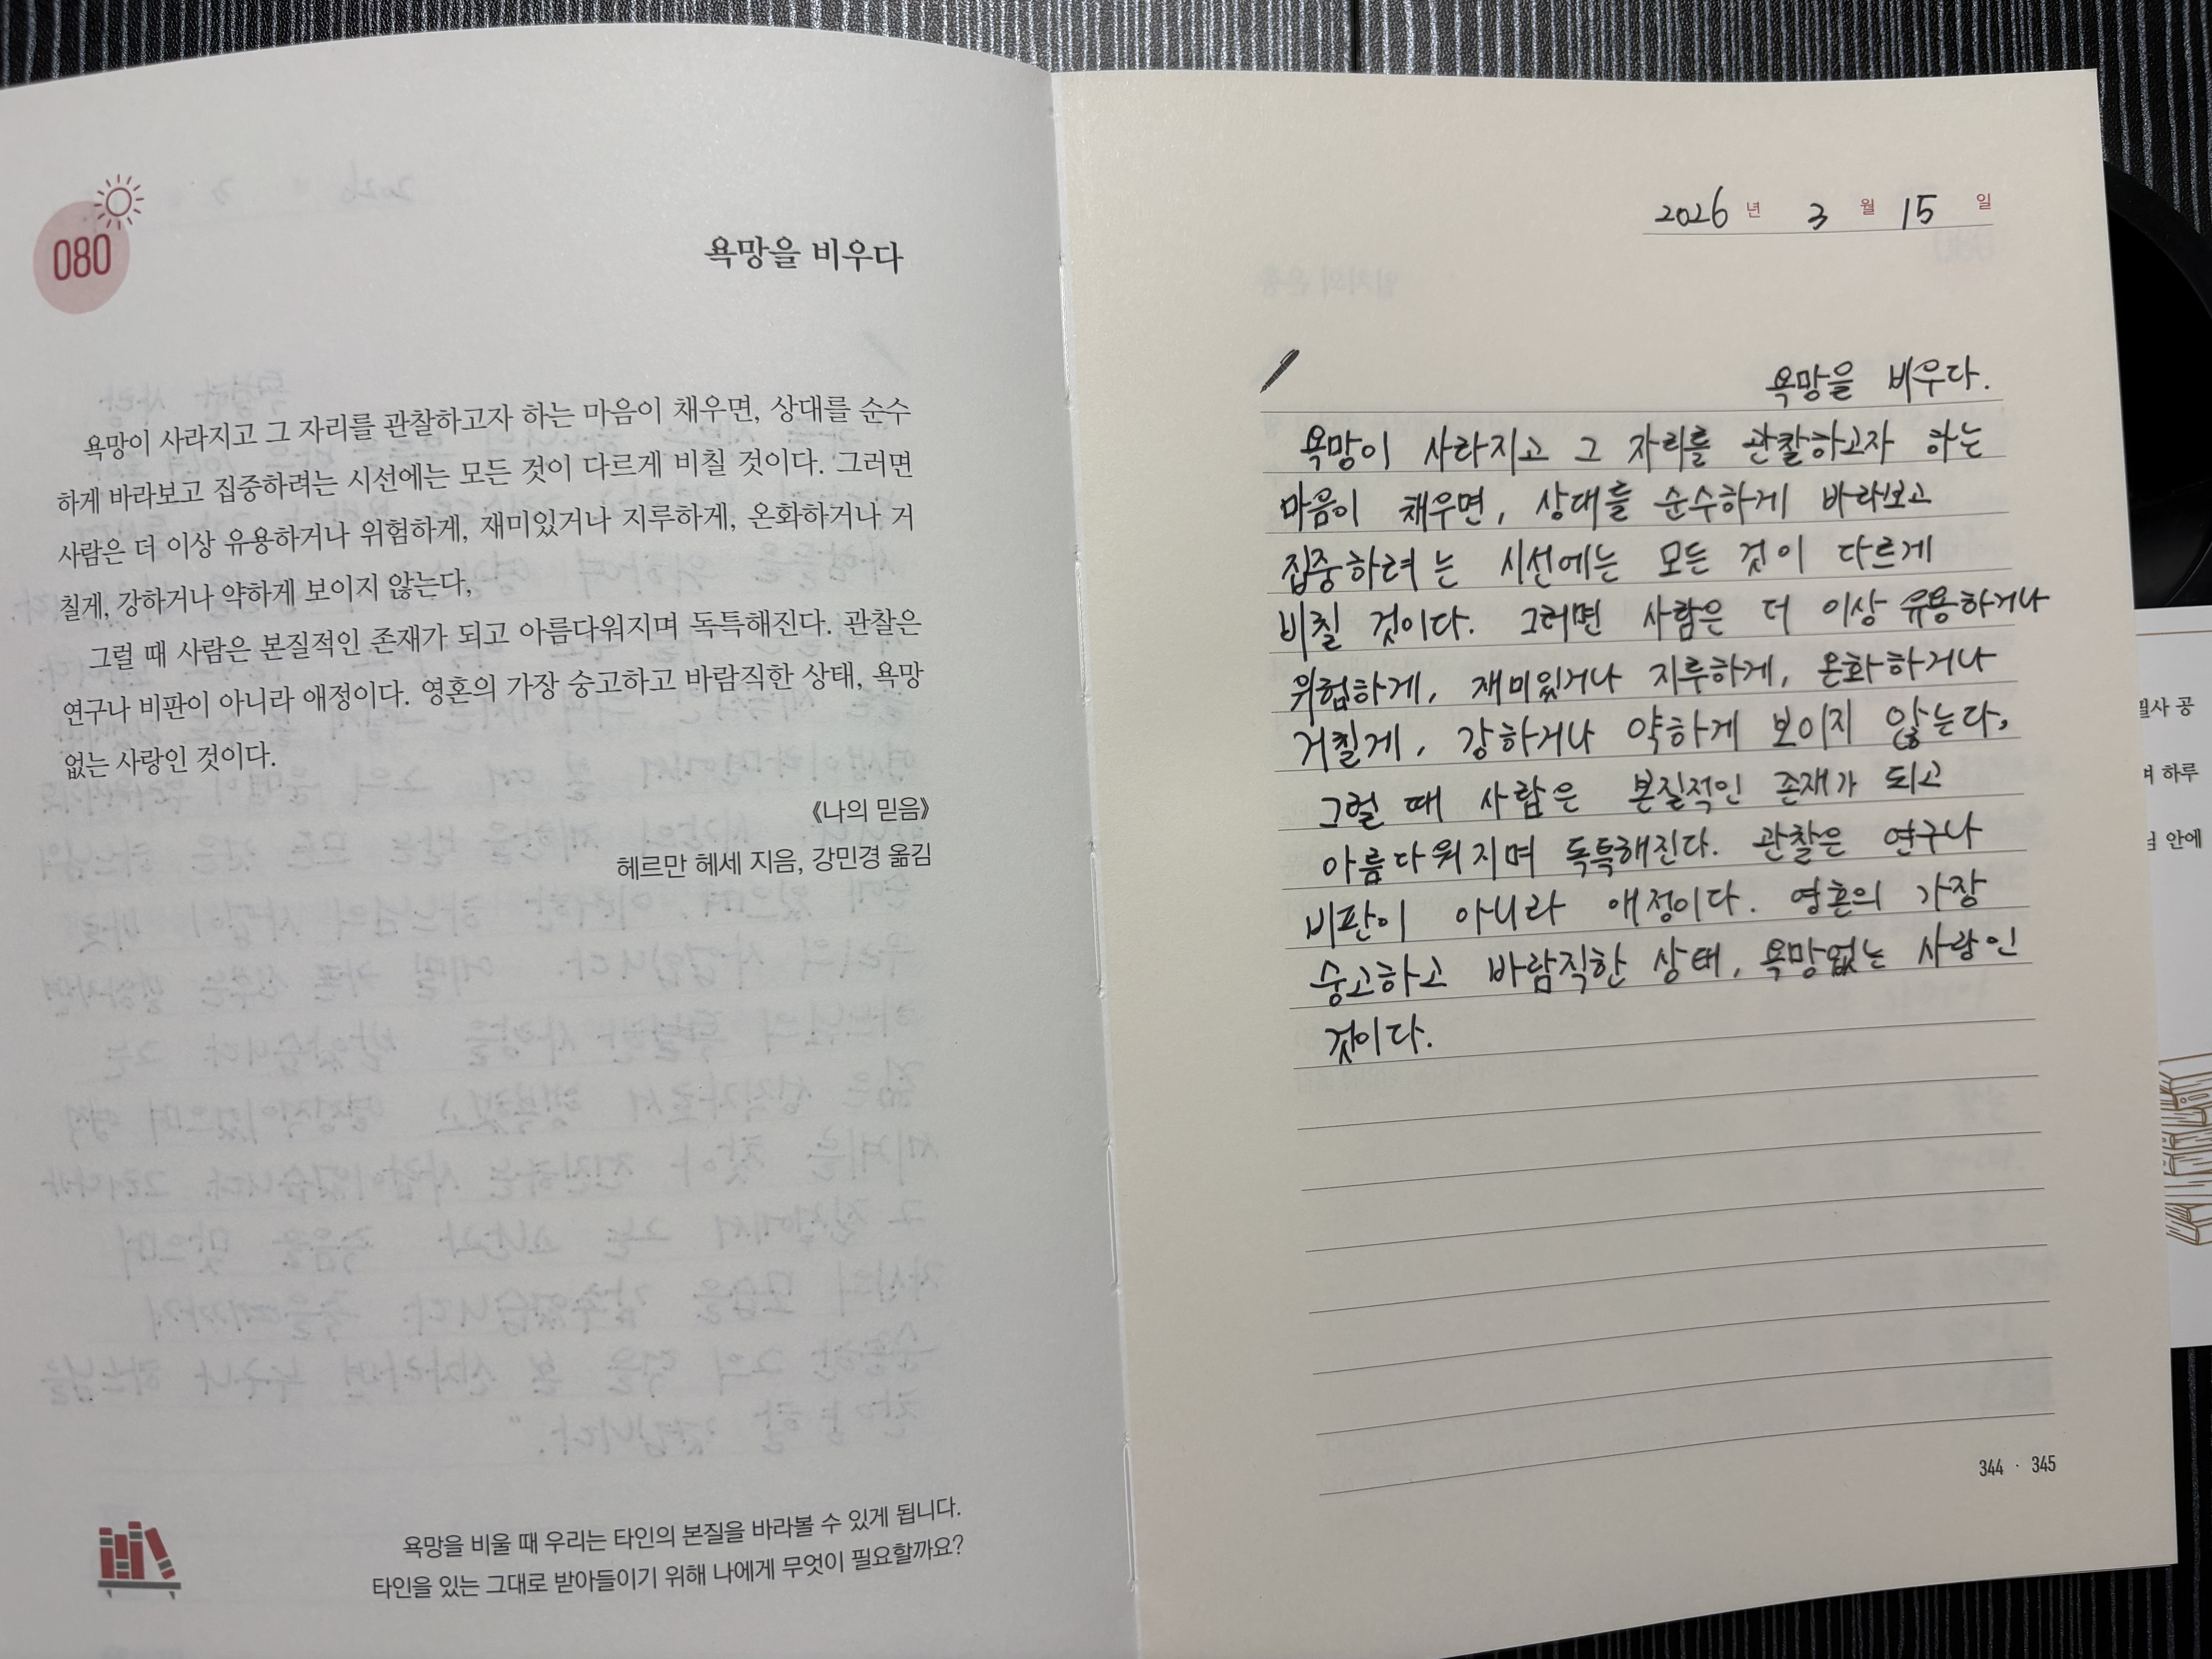 080
욕망을 비우다
욕망이 사라지고 그 자리를 관찰하고자 하는 마음이 채우면, 상대를 순수
하게 바라보고 집중하려는 시선에는 모든 것이 다르게 비칠 것이다. 그러면
사람은 더 이상 유용하거나 위험하게, 재미있거나 지루하게, 온화하거나 거
칠게, 강하거나 약하게 보이지 않는다,
그럴 때 사람은 본질적인 존재가 되고 아름다워지며 독특해진다. 관찰은
연구나 비판이 아니라 애정이다. 영혼의 가장 숭고하고 바람직한 상태, 욕망
없는 사랑인 것이다.
《나의 믿음》
헤르만 헤세 지음, 강민경 옮김
욕망을 비울 때 우리는 타인의 본질을 바라볼 수 있게 됩니다.
타인을 있는 그대로 받아들이기 위해 나에게 무엇이 필요할까요?
2026 년 3 월 15 일
욕망을 비우다.
욕망이 사라지고 그 자리를 관찰하고자 하는
마음이 채우면, 상대를 순수하게 바라보고
집중하려는 시선에는 모든 것이 다르게
비칠 것이다. 그러면 사람은 더 이상 유용하거나
위험하게, 재미있거나 지루하게, 온화하거나
거칠게, 강하거나 약하게 보이지 않는다,
그럴 때 사람은 본질적인 존재가 되고
아름다워지며 독특해진다. 관찰은 연구나
비판이 아니라 애정이다. 영혼의 가장
숭고하고 바람직한 상태, 욕망없는 사랑인
것이다.
344 · 345
필사 공
며 하루
안에